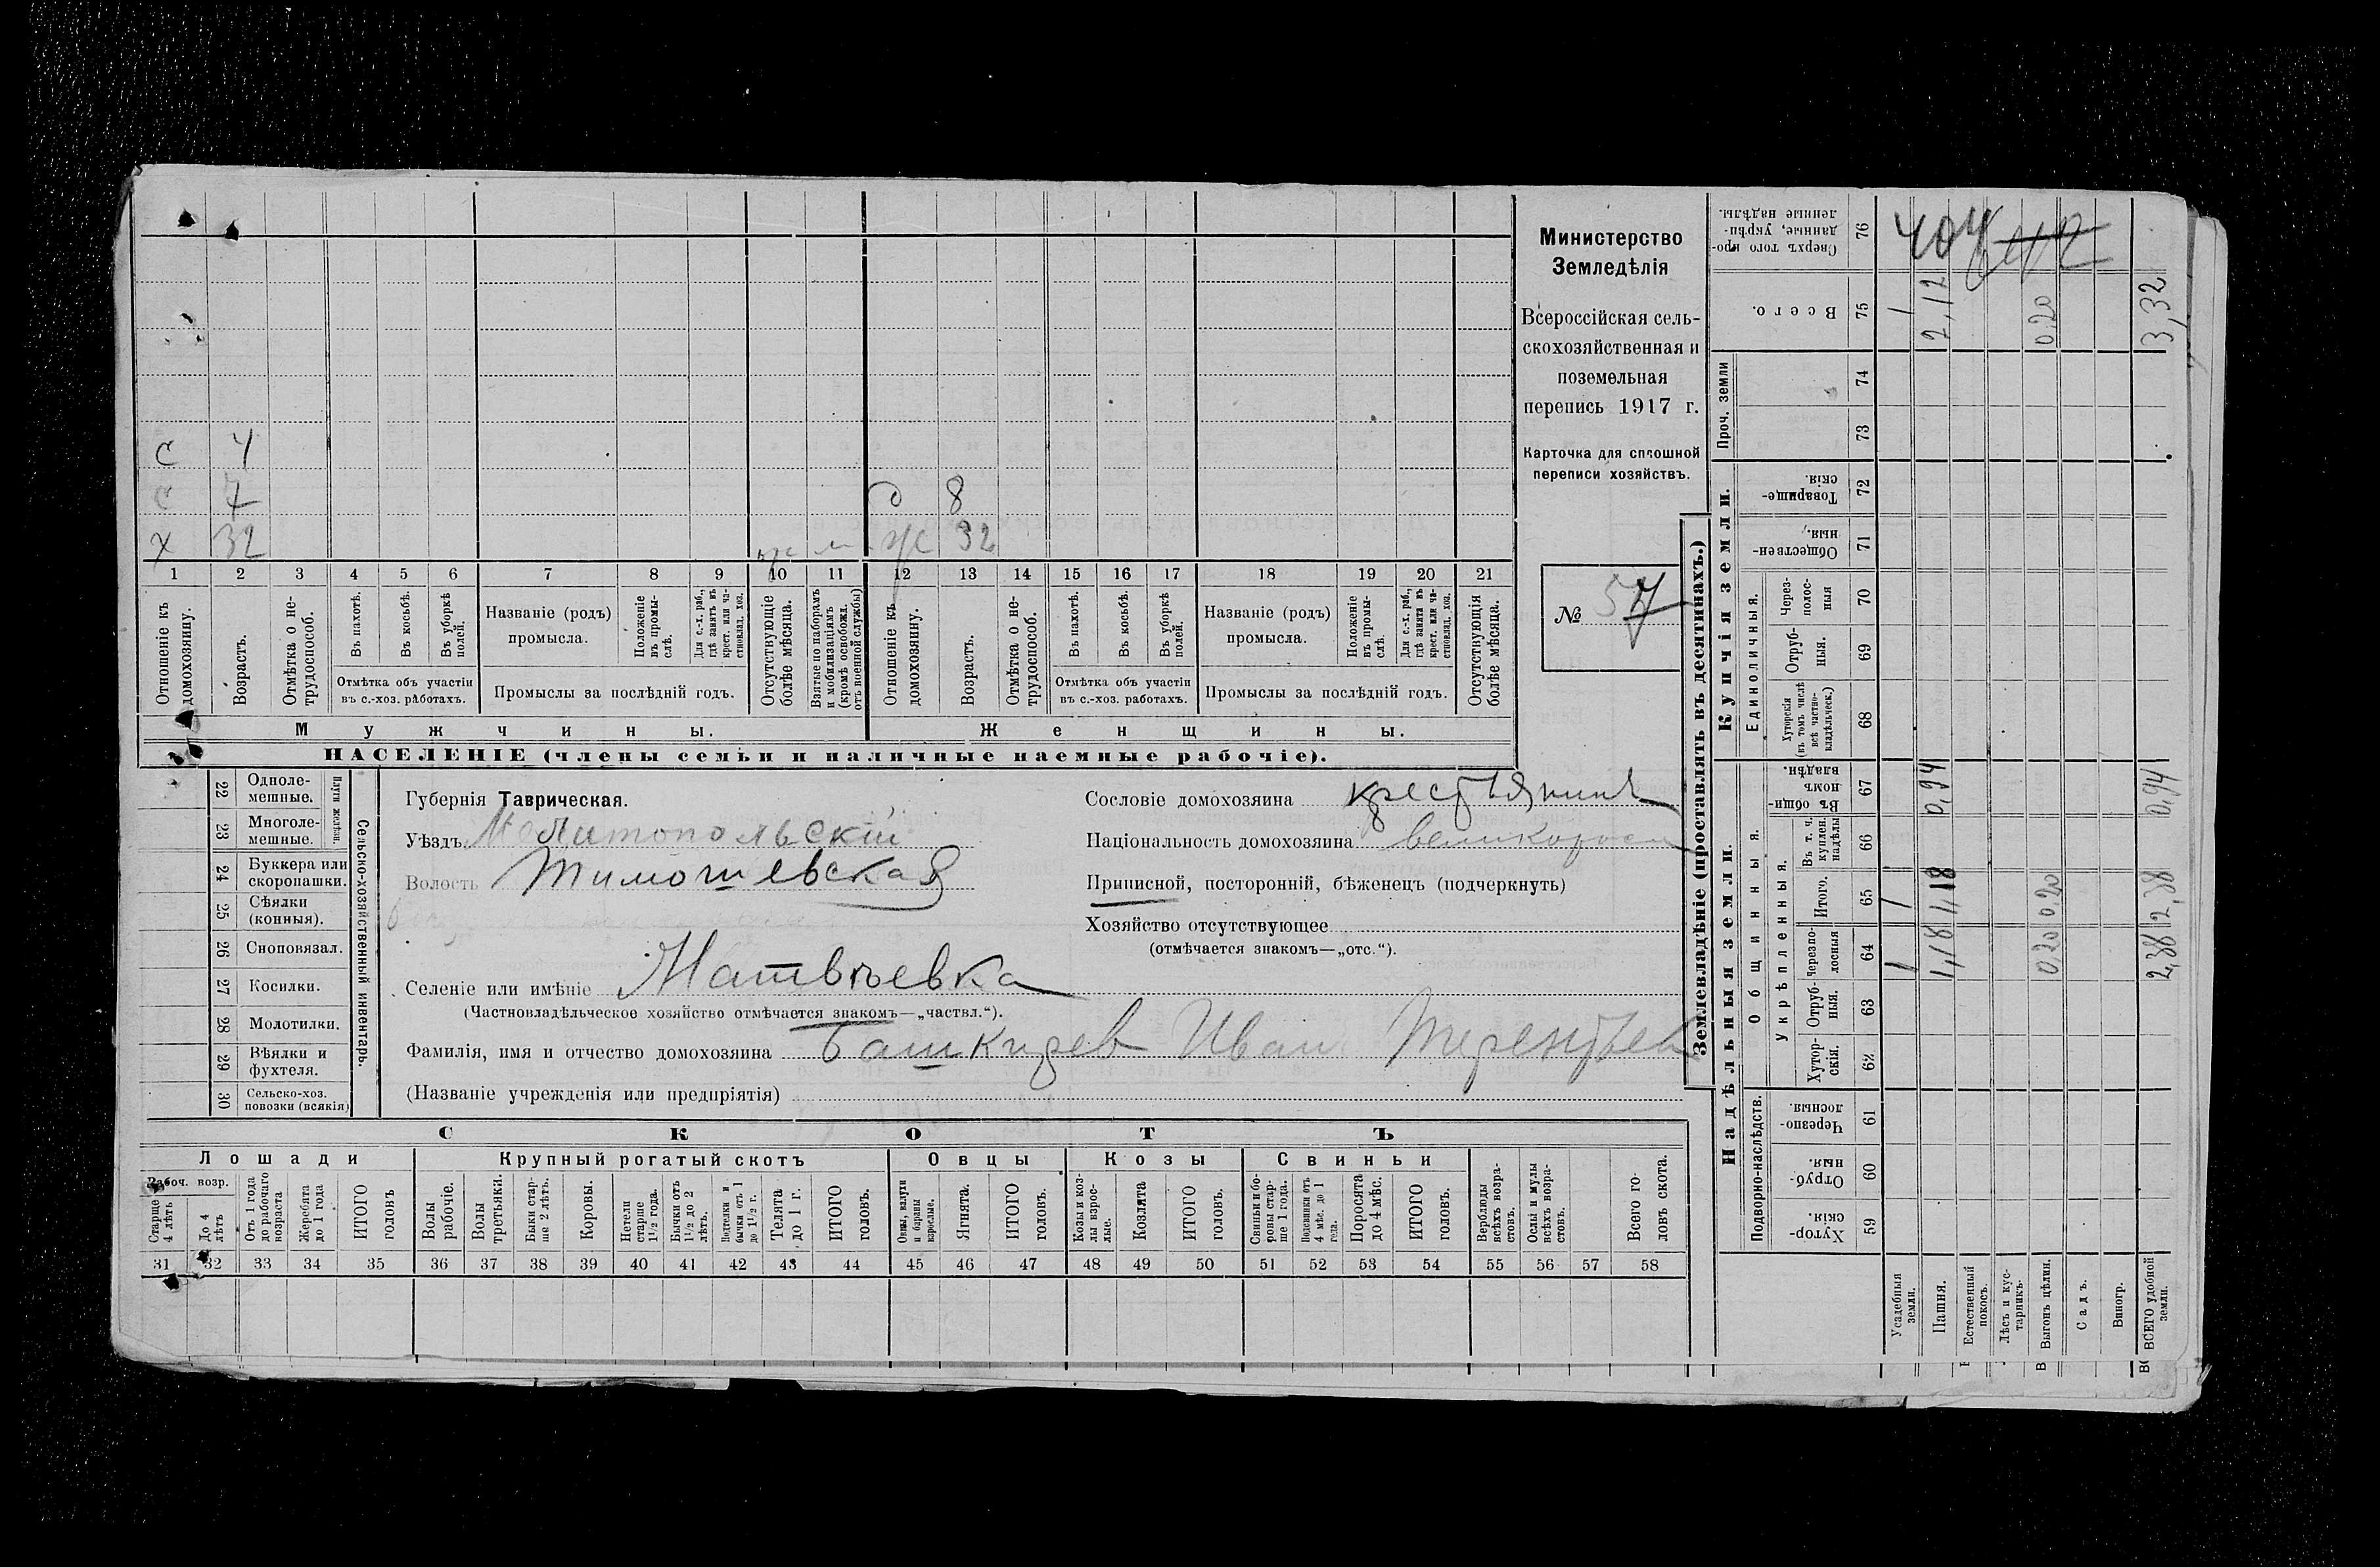 с 4
с 7 д 8
х 32 ж 32
1 2 3 4 5 6 7 8 9 10 11 12 13 14 15 16 17 18 19 20 21
Отношеніе къ домохозяину.
Возрастъ.
Отмѣтка о нетрудоспособ.
Въ пахотѣ.
Въ косьбѣ.
Въ уборкѣ полей.
Отмѣтка объ участіи въ с.-хоз. работахъ.
Названіе (родъ) промысла.
Положеніе въ промыслѣ.
Для с.-х. раб., гдѣ занятъ въ крест. или частновлад. хоз.
Промыслы за послѣдній годъ.
Отсутствующіе болѣе мѣсяца.
Взятые по наборамъ и мобилизаціямъ (кромѣ освобожд. отъ военной службы)
Отношеніе къ домохозяину.
Возрастъ.
Отмѣтка о нетрудоспособ.
Въ пахотѣ.
Въ косьбѣ.
Въ уборкѣ полей.
Отмѣтка объ участіи въ с.-хоз. работахъ.
Названіе (родъ) промысла.
Положеніе въ промыслѣ.
Для с.-х. раб., гдѣ занята въ крест. или частновлад. хоз.
Промыслы за послѣдній годъ.
Отсутствующія болѣе мѣсяца.
Мужчины.
Женщины.
НАСЕЛЕНІЕ (члены семьи и наличные наемные рабочіе).
Министерство
Земледѣлія
Всероссійская сель-
скохозяйственная и
поземельная
перепись 1917 г.
Карточка для сплошной
переписи хозяйствъ.
№ 57
22 Одноле-
мешные.
23 Многоле-
мешные.
Плуги желѣзн.
24 Буккера или
скоропашки.
25 Сѣялки
(конныя).
26 Сноповязал.
27 Косилки.
28 Молотилки.
29 Вѣялки и
фухтеля.
30 Сельско-хоз.
повозки (всякія)
Сельско-хозяйственный инвентарь.
Губернія Таврическая.
Уѣздъ Мелитопольскій
Волость Тимошевская
Селеніе или имѣніе Матвѣевка
(Частновладѣльческое хозяйство отмѣчается знакомъ—„частвл.“).
Фамилія, имя и отчество домохозяина Башкирев Иван Терентьев
(Названіе учрежденія или предпріятія)
Сословіе домохозяина крестьянинъ
Національность домохозяина великоросс
Приписной, посторонній, бѣженецъ (подчеркнуть)
Хозяйство отсутствующее
(отмѣчается знакомъ—„отс.“).
СКОТЪ
Лошади
Крупный рогатый скотъ
Овцы
Козы
Свиньи
Рабоч. возр.
Старше 4 лѣтъ
До 4 лѣтъ
Отъ 1 года до рабочаго возраста
Жеребята до 1 года
ИТОГО головъ
Волы рабочіе.
Волы третьяки.
Быки старше 2 лѣтъ.
Коровы.
Нетели старше 1½ года.
Бычки отъ 1½ до 2 лѣтъ.
Нетелки и бычки отъ 1 до 1½ г.
Телята до 1 г.
ИТОГО головъ.
Овцы, валухи и бараны взрослые.
Ягнята.
ИТОГО головъ.
Козы и козлы взрослые.
Козлята
ИТОГО головъ.
Свиньи и боровы старше 1 года.
Подсвинки отъ 4 мѣс. до 1 года.
Поросята до 4 мѣс.
ИТОГО головъ.
Верблюды всѣхъ возрастовъ.
Ослы и мулы всѣхъ возрастовъ.
Всего головъ скота.
31 32 33 34 35 36 37 38 39 40 41 42 43 44 45 46 47 48 49 50 51 52 53 54 55 56 57 58
Землевладѣніе (проставлять въ десятинахъ.)
Надѣльныя земли.
Купчія земли.
Проч. земли
Подворно-наслѣдств.
Общинныя.
Укрѣпленныя.
Единоличныя.
Хуторскія 59
Отрубныя. 60
Черезполосныя. 61
Хуторскія. 62
Отрубныя. 63
Черезполосныя 64
Итого. 65
Въ т. ч. куплен. надѣлы 66
Въ общиномъ владѣн. 67
Хуторскія (въ томъ числѣ всѣ частновладѣльческ.) 68
Отрубныя. 69
Черезполосныя 70
Общественныя. 71
Товарищескія. 72
73
74
Всего. 75
Сверхъ того проданные, укрѣпленные надѣлы. 76
Усадебныя земли. 1 1 1
Пашня. 1,18 1,18 0,94 2,12
Естественный покосъ.
Лѣсъ и кустарникъ.
Выгонъ цѣлин. 0,20 0,20 0,20
Садъ.
Виногр.
ВСЕГО удобной земли. 2,38 2,38 0,94 3,32
404